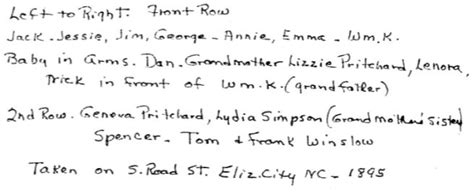 Left to Right. Front Row
Jack. Jessie, Jim, George - Annie, Emma - Wm. K.
Baby in arms. Dan - Grandmother Lizzie Pritchard, Lenora,
Mick in front of Wm. K. (grandfather)
2nd Row. Geneva Pritchard, Lydia Simpson (Grandmother's sister)
Spencer - Tom & Frank Winslow
Taken on S. Road St. Eliz. City NC - 1895